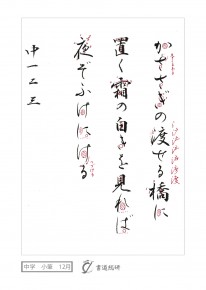 かささぎの渡せる橋に
置く霜の白きを見れば
夜ぞふけにける
中一二三
中学 小筆 12月
書道銘研